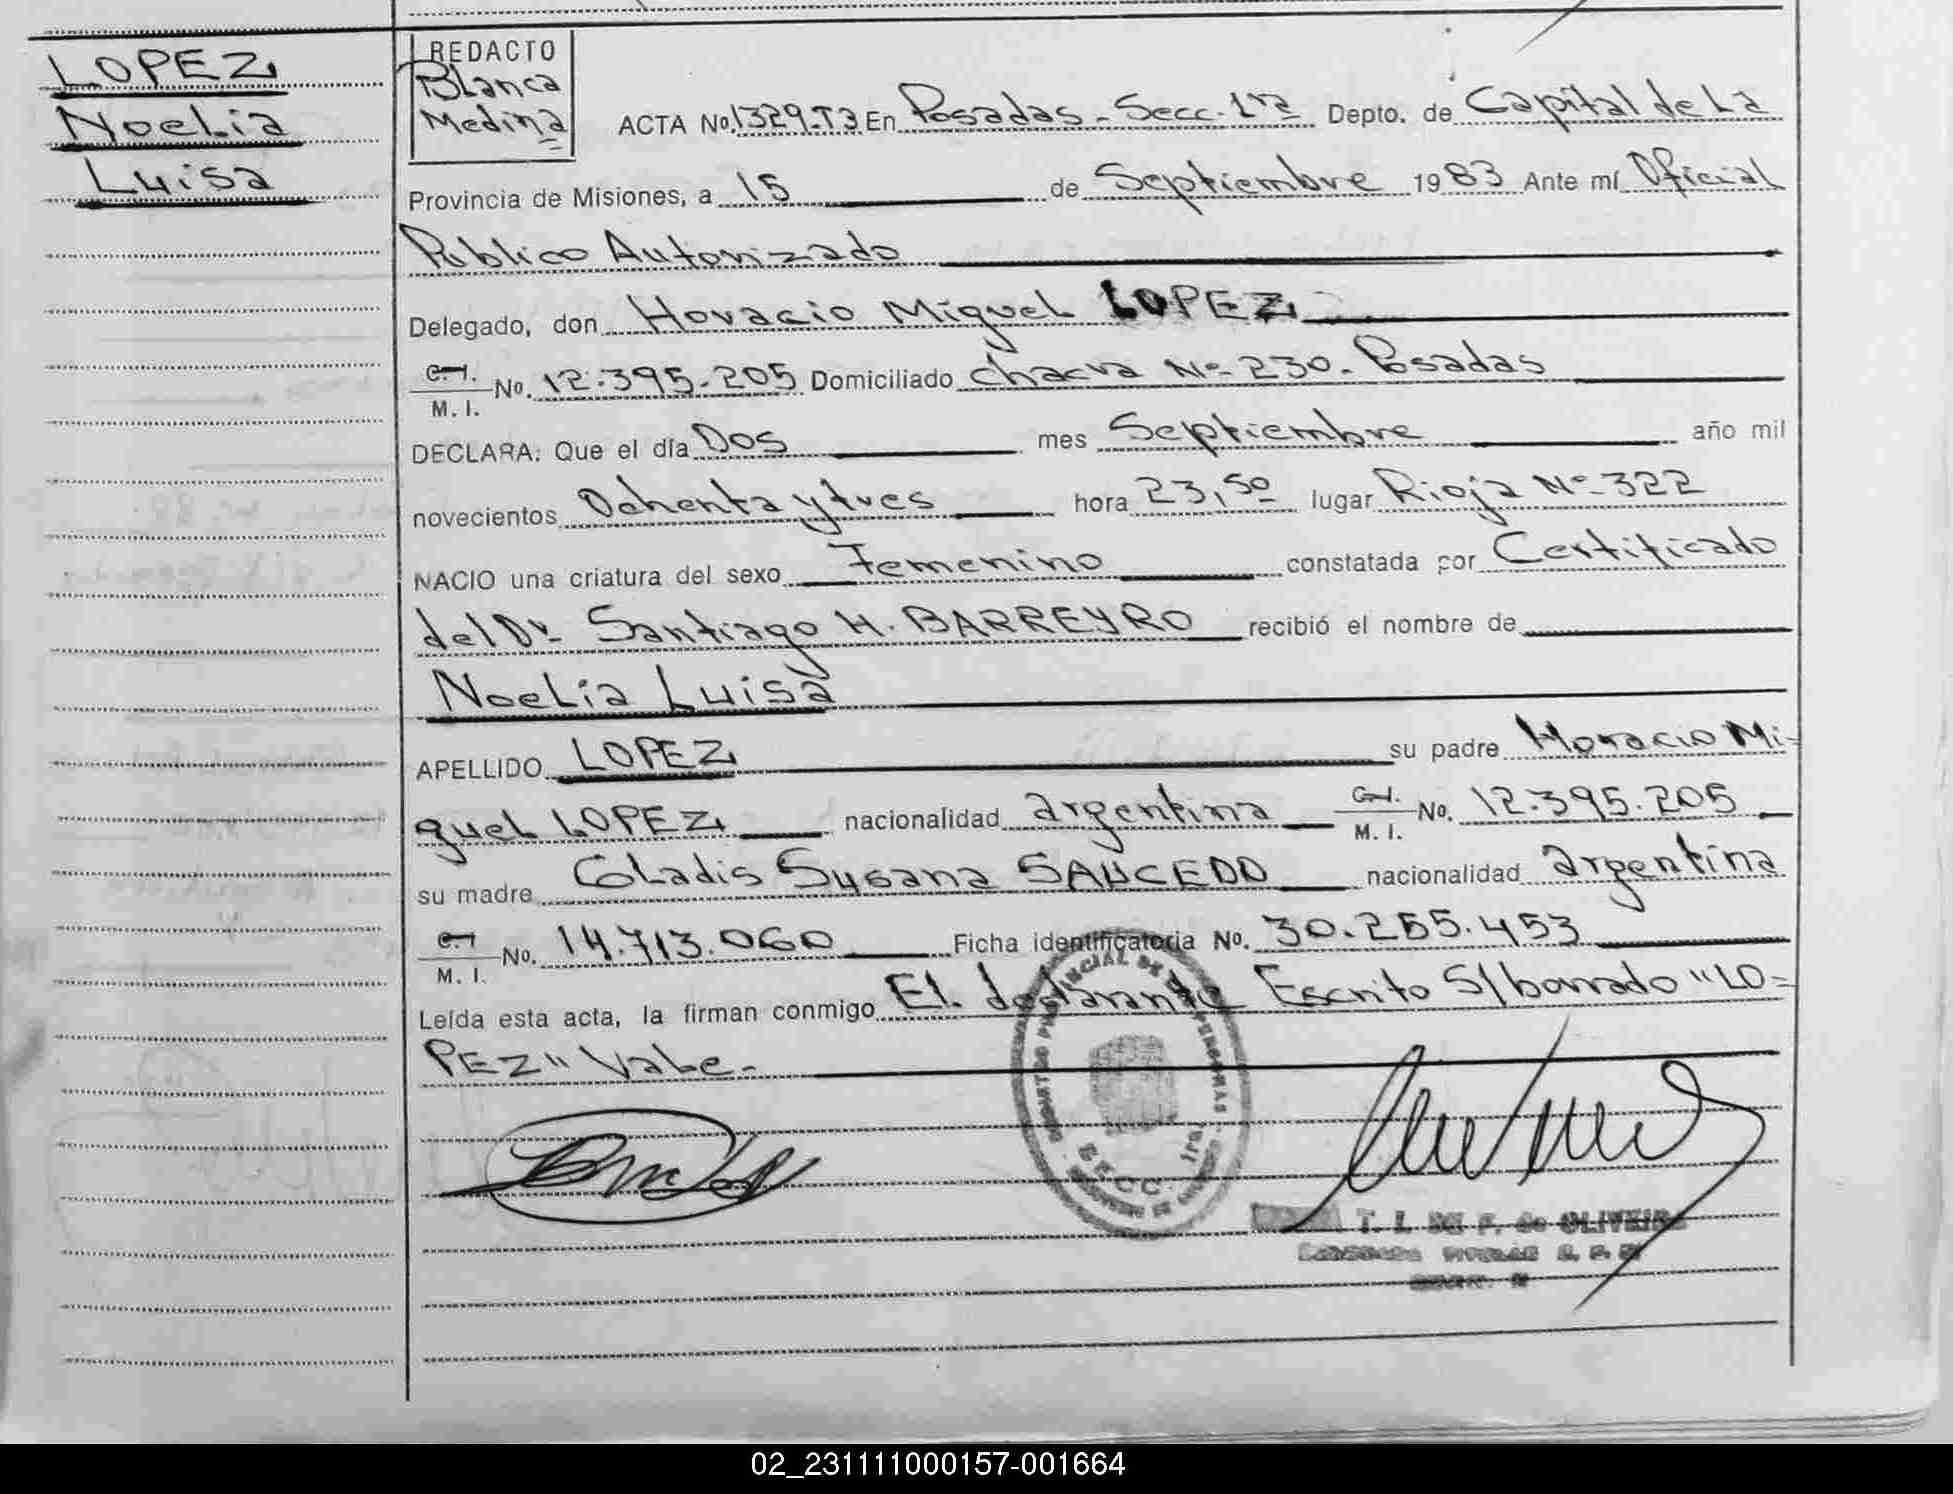 LOPEZ
Noelia
Luisa
REDACTO
Blanca
Medina
ACTA No. 1329-T3 En Posadas - Secc. 1ra Depto. de Capital de La
Provincia de Misiones, a 15 de Septiembre 1983 Ante mí Oficial
Publico Autorizado
Delegado, don Horacio Miguel LOPEZ
C.I. M. I. No. 12.395.205 Domiciliado chacra No- 230. Posadas
DECLARA: Que el día Dos mes Septiembre año mil
novecientos Ochenta y tres hora 23,50 lugar Rioja No- 322
NACIO una criatura del sexo Femenino constatada por Certificado
del Dr. Santiago H. BARREYRO recibió el nombre de
Noelia Luisa
APELLIDO LOPEZ su padre Horacio Mi-
guel LOPEZ nacionalidad argentina C.I. M. I. No. 12.395.205
su madre Gladis Susana SAUCEDO nacionalidad argentina
C.I. M. I. No. 14.713.060 Ficha identificatoria No. 30.255.453
Leída esta acta, la firman conmigo El declarante Escrito S/borrado "LO-
PEZ" Vale.-
SECC. 1ra.
T. I. de OLIVEIRA
02_231111000157-001664